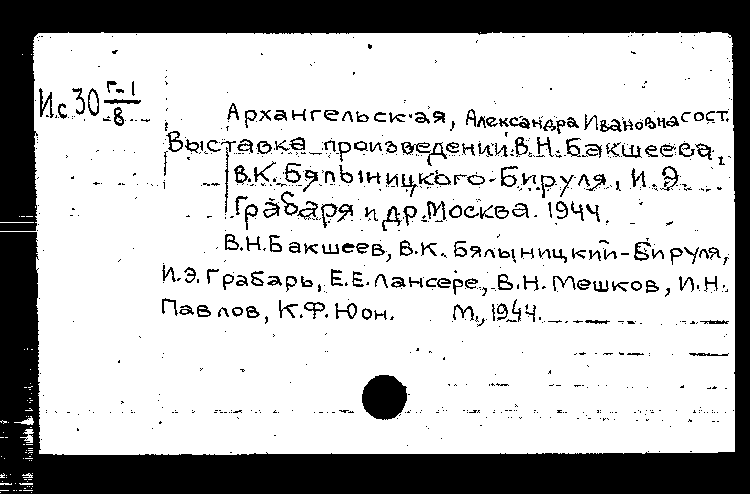 Ис 30 Г-1/8
Архангельская, Александра Ивановна сост.
Выставка произведений В.Н. Бакшеева,
В.К. Бялыницкого-Бируля, И.Э.
Грабаря и др. Москва. 1944.
В.Н. Бакшеев, В.К. Бялыницкий-Бируля,
И.Э. Грабарь, Е.Е. Лансере, В.Н. Мешков, И.Н.
Павлов, К.Ф. Юон. М., 1944.